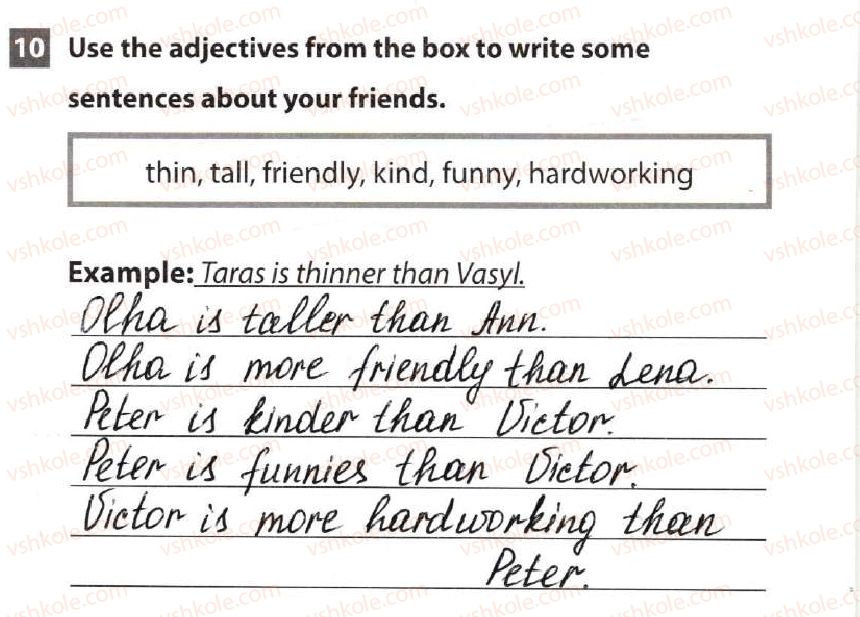 10 Use the adjectives from the box to write some
sentences about your friends.
thin, tall, friendly, kind, funny, hardworking
Example: Taras is thinner than Vasyl.
Olha is taller than Ann.
Olha is more friendly than Lena.
Peter is kinder than Victor.
Peter is funnies than Victor.
Victor is more hardworking than
Peter.
vshkole.com